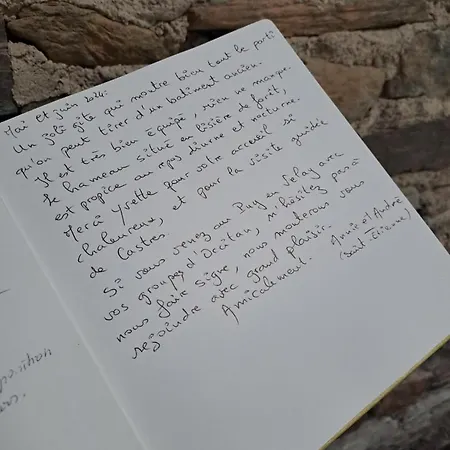 Mai et juin 2024.
Un joli gîte qui montre bien tout le parti
qu'on peut tirer d'un batiment ancien.
Il est très bien équipé, rien ne manque.
Le hameau situé en lisière de forêt,
est propice au repos diurne et nocturne.
Merci Yvette pour votre accueil si
chaleureux, et pour la visite guidée
de Castres.
Si vous venez au Puy en Velay avec
vos groupes d'Occitan, n'hésitez pas à
nous faire signe, nous monterons vous
rejoindre avec grand plaisir.
Amicalement. Annie et André
(Saint-Etienne)